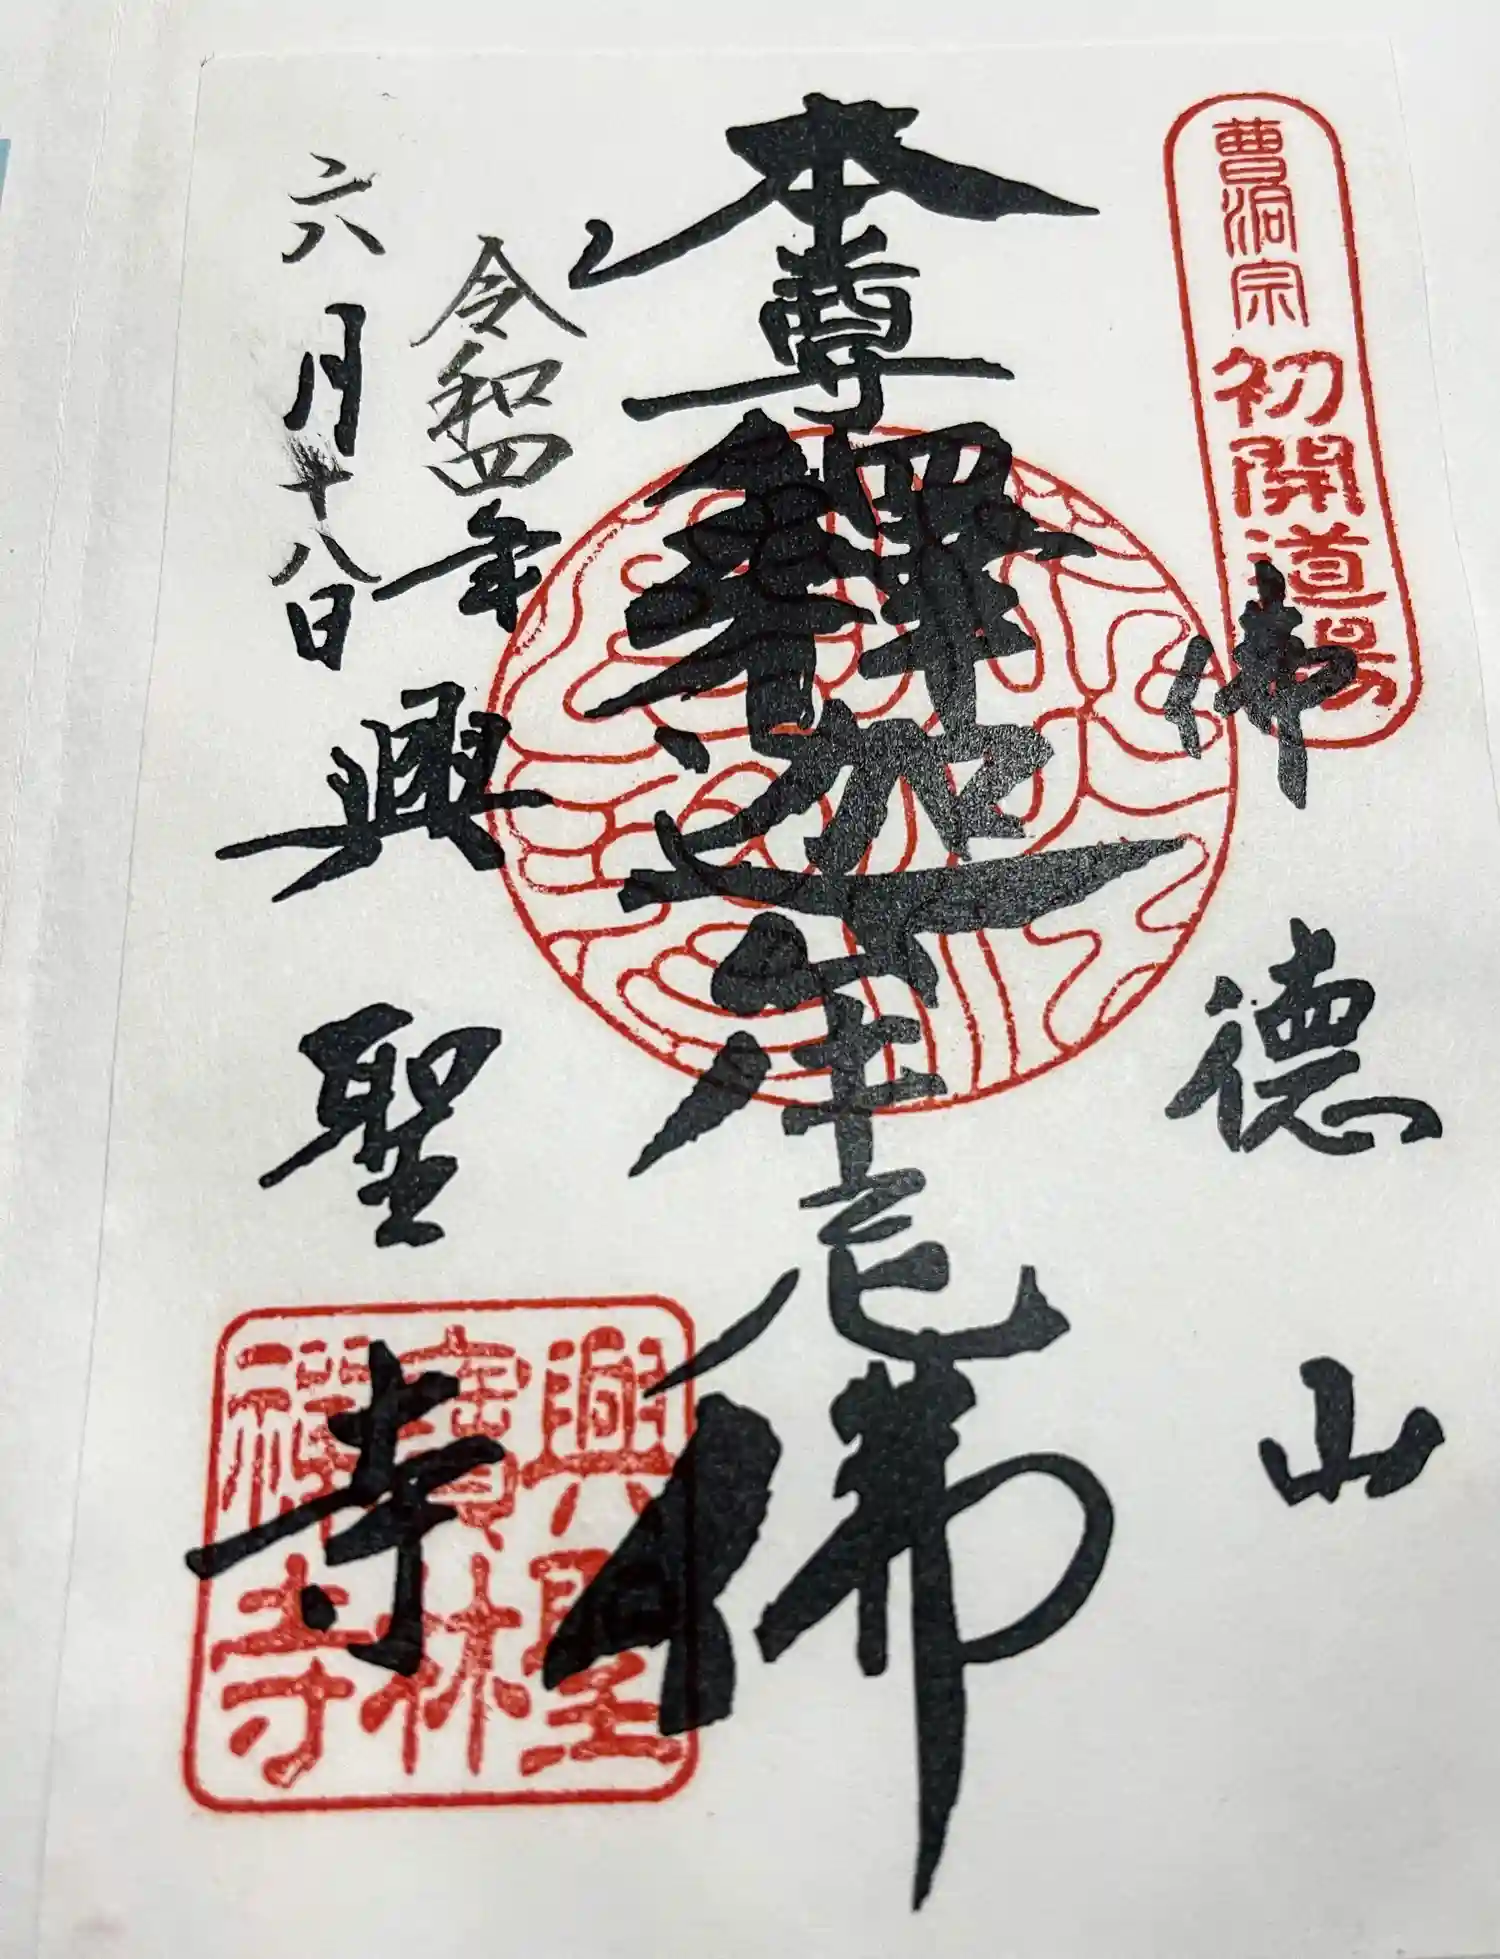 曹洞宗初開道場
佛德山
本尊釋迦牟尼佛
令和四年
六月十八日
興聖寺
興聖
寶林
禅寺